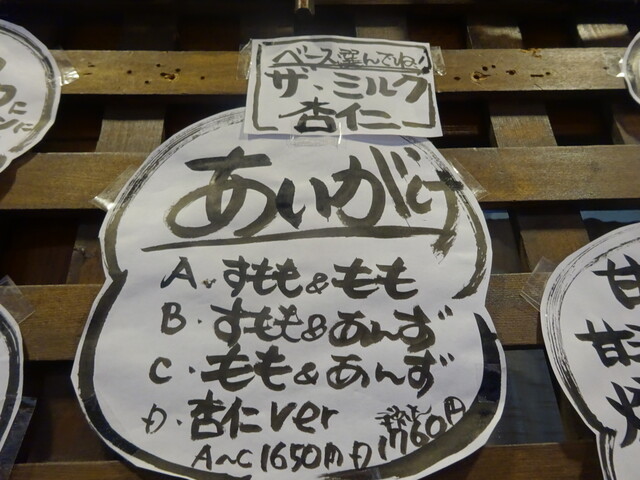 ベース選んでね!
ザ・ミルク
杏仁
あいがけ
A.すもも&もも
B.すもも&あんず
C.もも&あんず
D.杏仁ver
A~C1650円D1760円